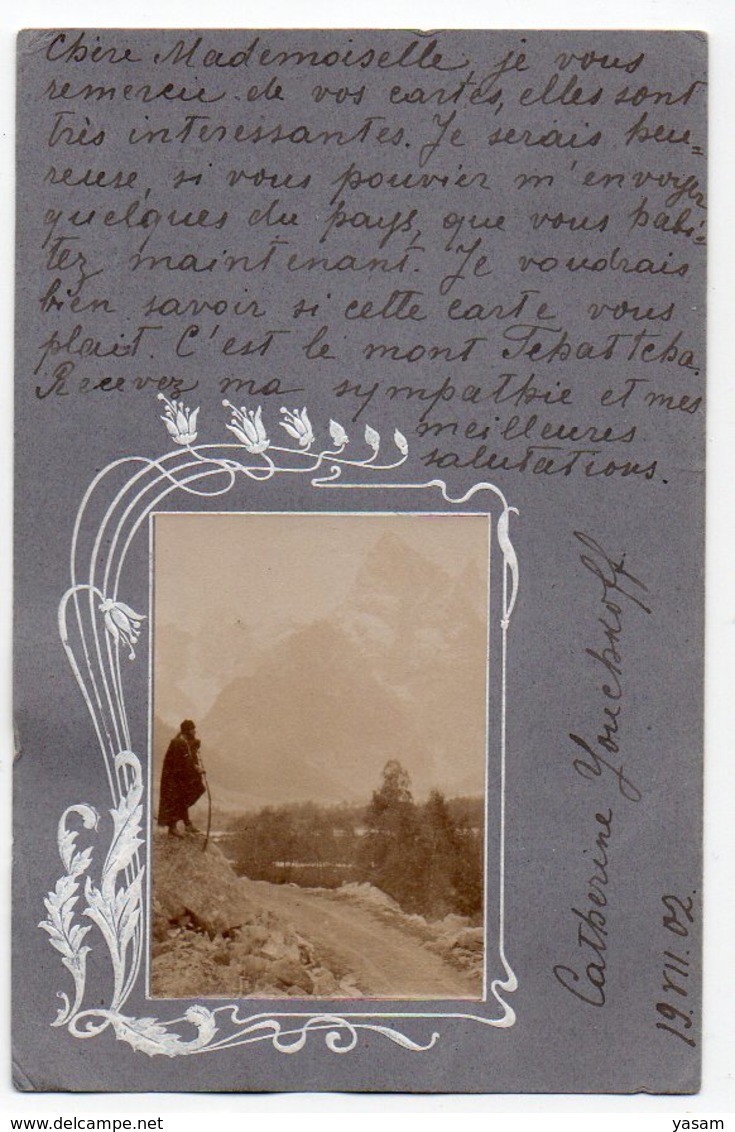 Chère Mademoiselle, je vous
remercie de vos cartes, elles sont
très interessantes. Je serais heu=
reuse, si vous pouvier m'envoyer
quelques du pays, que vous habi=
tez maintenant. Je voudrais
bien savoir si cette carte vous
plait. C'est le mont Tchattcha.
Recevez ma sympathie et mes
meilleures
salutations.
Catherine Youchkoff
19.VII.02.
yasam